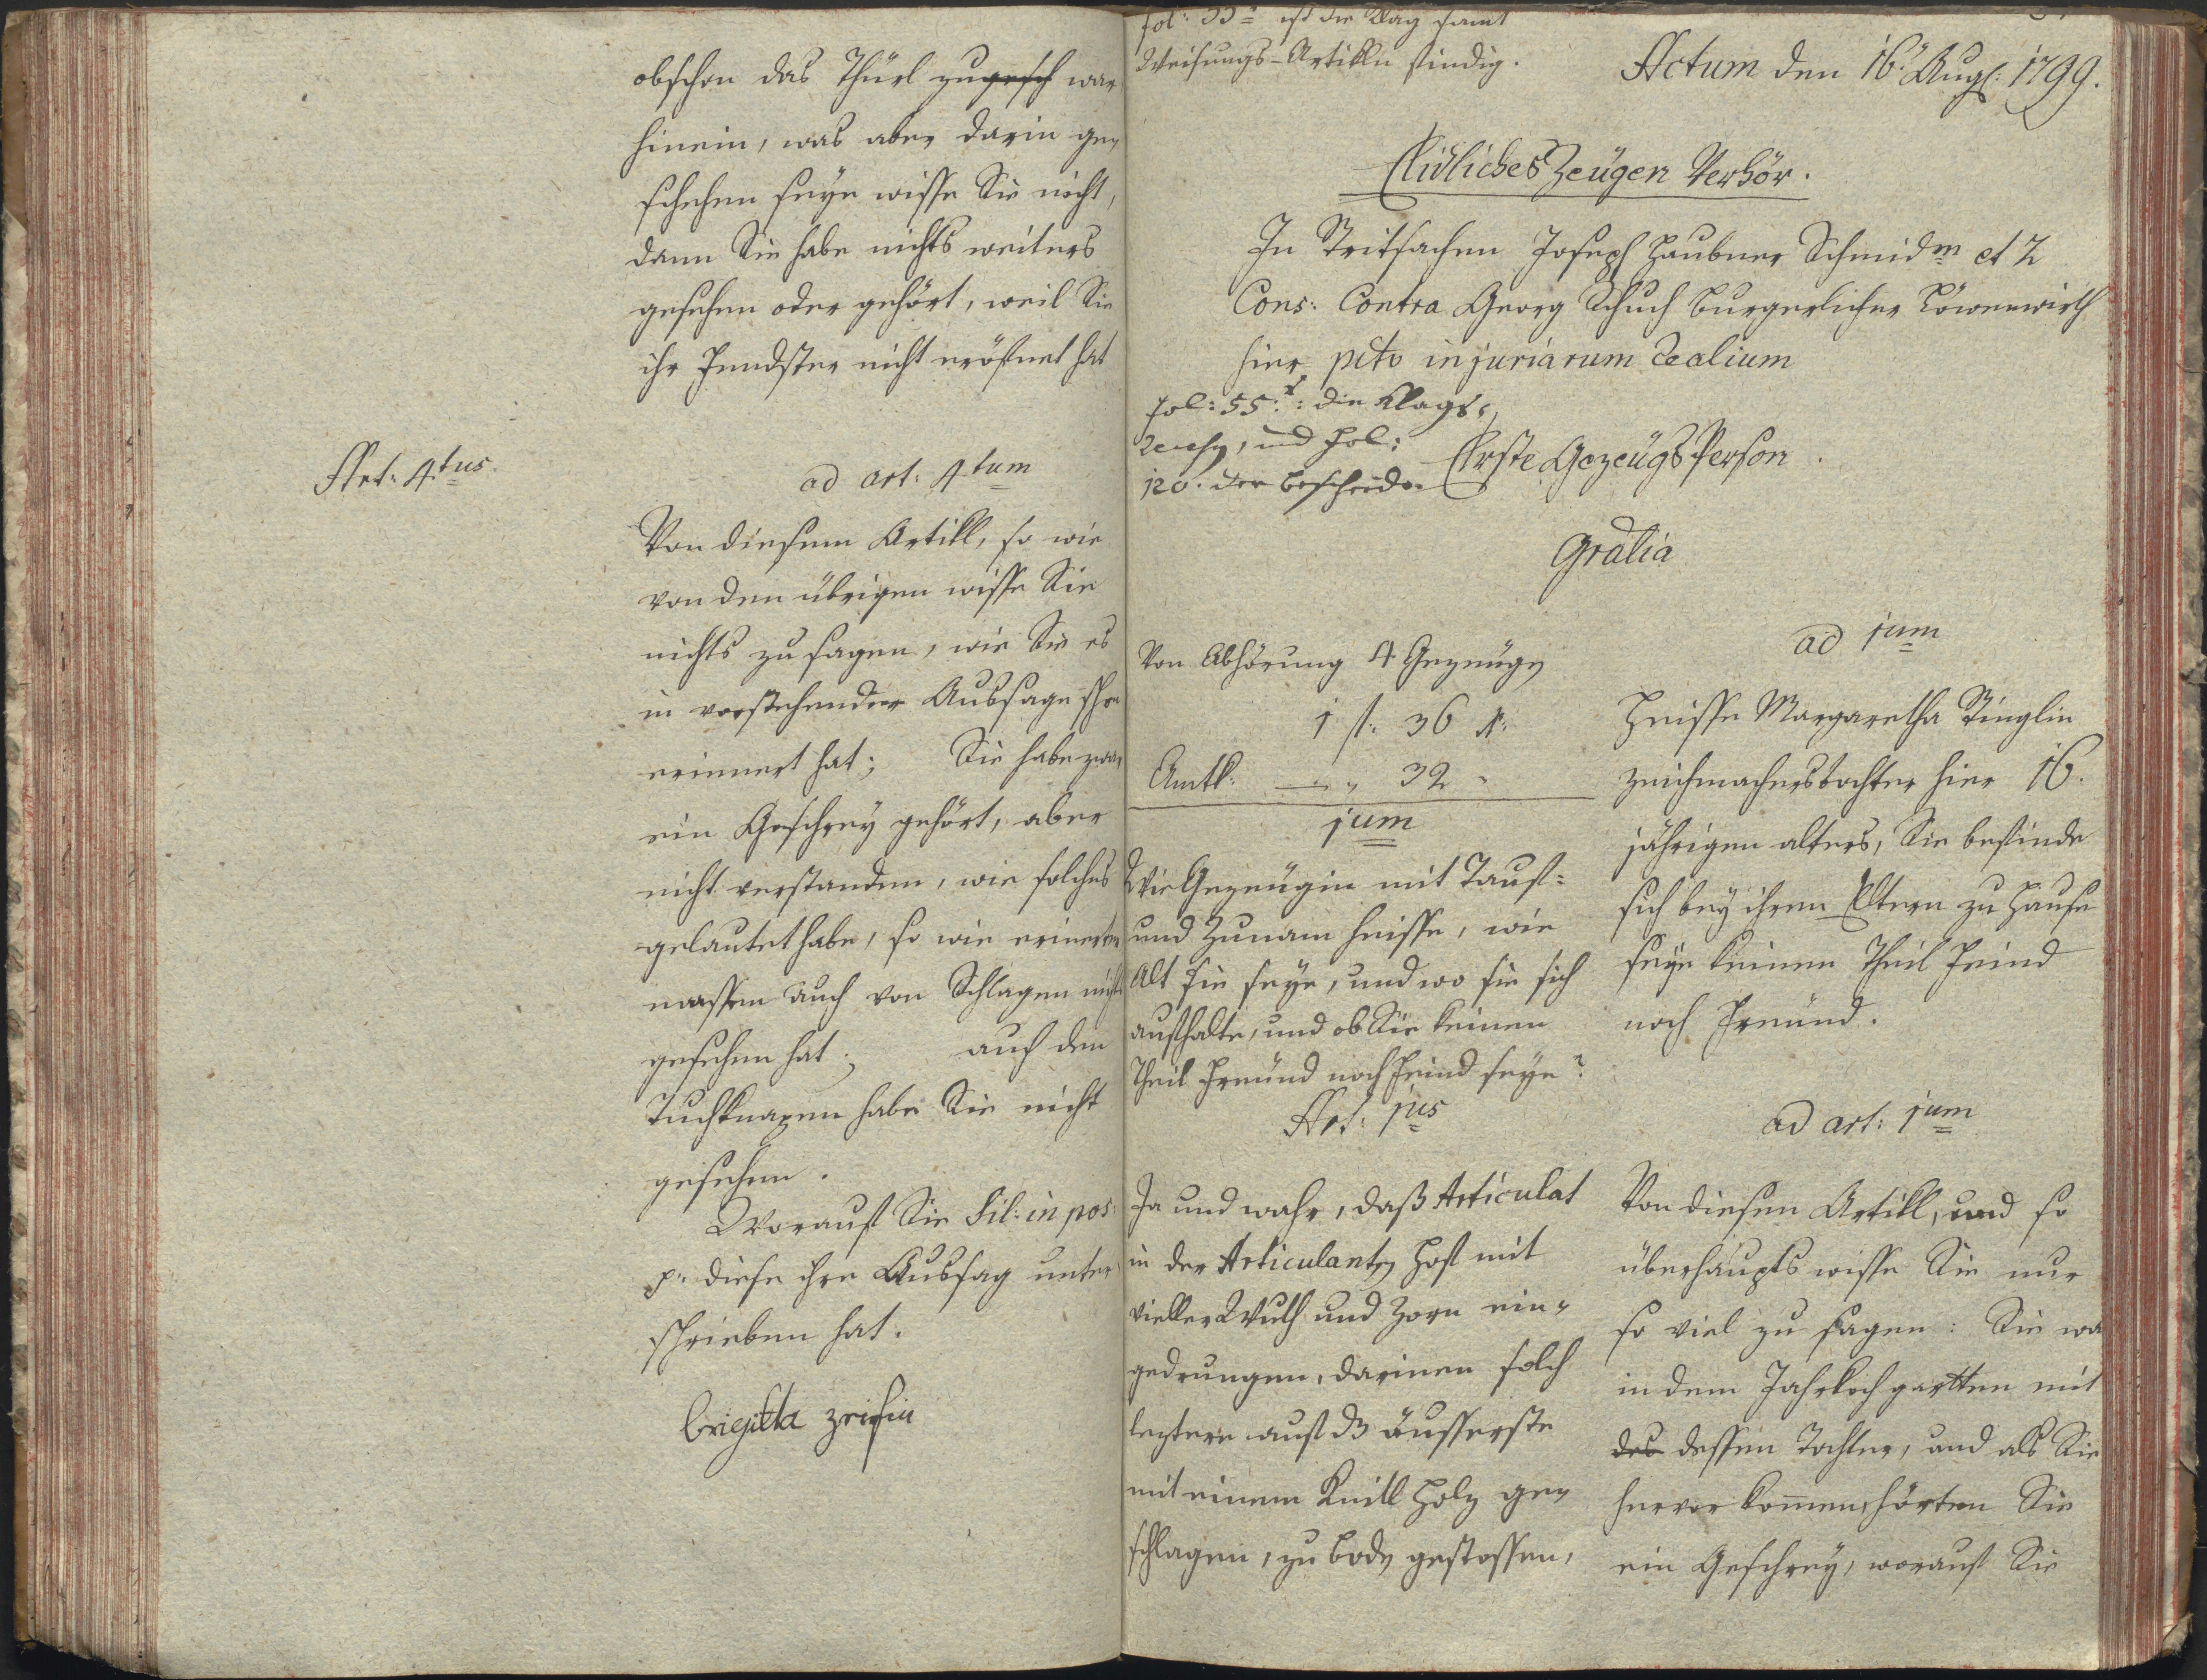 Art: 4.tus
obschon das Thürl zugesch war
hinein, was aber darin ge=
schehen seye wisse Sie nicht,
dann Sie habe nichts weiters
gesehen oder gehört, weil Sie
ihr Fendster nicht eröfnet hat
ad art: 4.tum
Von diesem Artikl, so wie
von den übrigen wisse Sie
nichts zu sagen, wie Sie es
in vorstehender Aussage schon
erinnert hat; Sie habe zwar
ein Geschrey gehört, aber
nicht verstanden, wie solches
gelautet habe, so wie erinerter
massen auch von Schlagen nichts
gesehen hat; auf den
Tuchknapen habe Sie nicht
gesehen.
Worauf Sie Sil: in pos:
p: diese ihre Aussag unter
schrieben hat.
brigitta zeisin
fol: 55 ist die Klag samt
Weisungs-Artikln findig.
Actum den 16. Augs: 1799.
Eidliches Zeügen Verhör.
In Stritsachen Joseph Haubner Schmidm et 2
Cons: Contra Georg Schuch burgerlicher Löwenwirth
hier pcto injuriarum realium
fol: 55: die Klags
und fol:
120. der bescheid
Erste Gezeügs Person.
Gralia
Von Abhörung 4 Gezeügen
1 f: 36 x:
Amtl: — " 32 "
1um
Wie Gezeügin mit Tauf=
und Zunam heisse, wie
Alt sie seye, und wo sie sich
aufhalte, und ob Sie keinen
Theil Freünd noch Feind seye?
Art: 1us
Ja und wahr, daß Articulat
in der Articulanten Hof mit
vieller Wuth und Zorn ein=
gedrungen, darinen solch
leztere auf dz äusserste
mit einem Knitl Holz ge=
schlagen, zu boden gestossen,
ad 1um
Heisse Margaretha Ringlin
zeichmacherstochter hier 16.
jährigen alters, Sie befinde
sich bey ihren Eltern zu Hause
seye keinem Theil Feind
noch Freünd.
ad art: 1um
Von diesen Artikl, und so
überhaupts wisse Sie nur
so viel zu sagen: Sie war
in dem Jahrkoch gartten mit
des dessen Tochter, und als Sie
hervor kommen, hörten Sie
ein Geschrey, worauf Sie